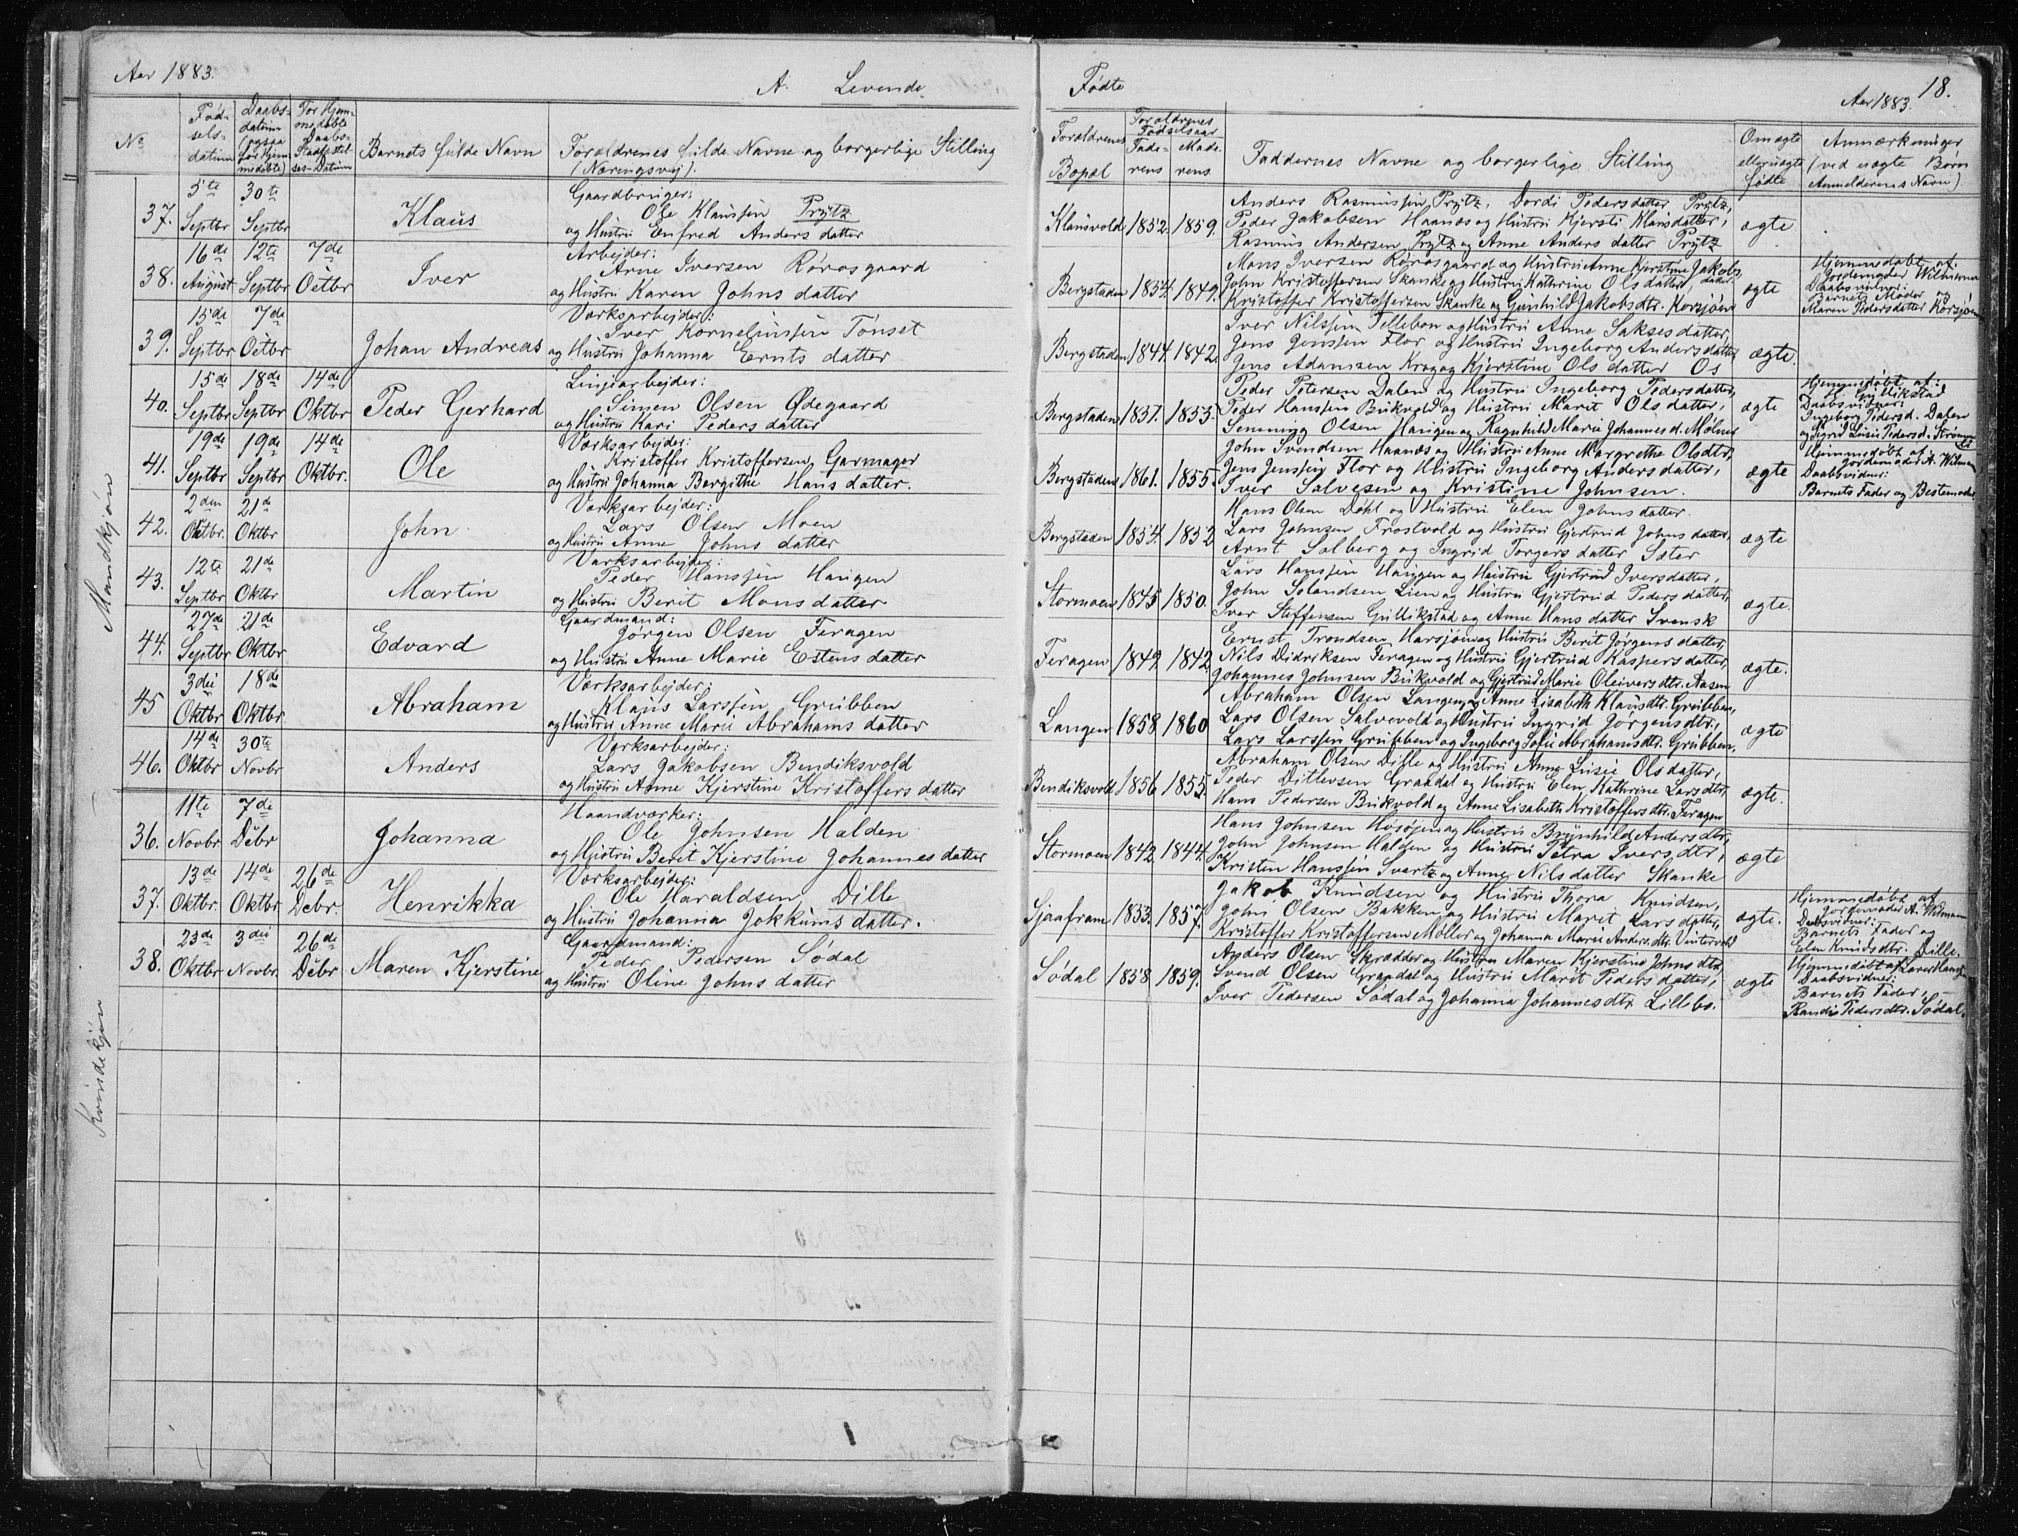 Aar 1883.
A. Levende
Fødte
18.
Aar 1883.
No
Fødselsdatum
Daabsdatum (ogsaa for hjemmedøbte)
For Hjemmedøbte Daabs-Stadfæstelses-Datum
Barnets fulde Navn
Forældrenes fulde Navne og borgerlige Stilling
(Næringsvej).
Forældrenes Bopæl
Forældrenes Fødselsaar
Faderens
Moderens
Faddernes Navne og borgerlige Stilling
Om ægte eller uægte fødte
Anmærkninger
(ved uægte Børn Anmelderens Navn)
Mandkjøn
37. 5te Septbr 30te Septbr Klaus
Gaardbruger:
Ole Klaussen Prytz
og Hustru Enfred Anders datter
Klausvold 1852. 1859.
Anders Rasmussen Prytz, Dordi Pedersdatter Prytz,
Peder Jakobsen Haanæs og Hustru Kjersti Klausdatter,
Rasmus Andersen Prytz og Anne Anders datter Prytz
ægte
38. 16de August 12te Septbr 7de Octbr Iver
Arbejder:
Arne Iversen Rørosgaard
og Hustru Karen Johns datter
Bergstaden 1854. 1849.
Mons Iversen Rørosgaard og Hustru Anne Kjerstine Jakobsdatter
John Kristoffersen Skanke og Hustru Kathrine Olsdatter,
Kristoffer Kristoffersen Skanke og Gunhild Jakobsdtr. Korsjøen
ægte
Hjemmedøbt af:
Jordemoder
Daabsvidner:
Barnets Moder og
Maren Pedersdatter Korsjøen
39. 15de Septbr 7de Octbr Johan Andreas
Værksarbejder:
Iver Korneliussen Tønset
og Hustru Johanna Ernts datter
Bergstaden 1844. 1842.
Iver Nilssen Tellebon og Hustru Anne Saksesdatter,
Jens Jenssen Flor og Hustru Ingeborg Andersdatter,
Jens Adamsen Krog og Kjerstine Ols datter Os
ægte.
40. 15de Septbr 18de Septbr 14de Oktbr Peder Gerhard
Linjearbejder:
Simen Olsen Ødegaard
og Hustru Kari Peders datter
Bergstaden 1851. 1853.
Peder Petersen Dalen og Hustru Ingeborg Pedersdatter,
Peder Hanssen Bukvold og Hustru Marit Olsdatter,
Semming Olsen Haugen og Ragnhild Marie Johannesd. Molner
ægte
Hjemmedøbt af:
Daabsvidner:
Ingeborg Pedersd. Dalen
og Sigrid Lusie Pedersd.
41. 19de Septbr 19de Septbr 14de Oktbr. Ole
Værksarbejder:
Kristoffer Kristoffersen Garmager
og Hustru Johanna Bergithe Hans datter.
Bergstaden 1861. 1855.
John Svendsen Haanæs og Hustru Anne Margrethe Olsdtr,
Jens Jenssen Flor og Hustru Ingeborg Andersdatter,
Iver Salvesen og Kristine Johnsen.
ægte
Hjemmedøbt af:
Jordemoder A.
Daabsvidner:
Barnets Fader og Bestemoder
42. 2den Oktbr. 21de Oktbr John
Værksarbejder:
Lars Olsen Moen
og Hustru Anne Johns datter
Bergstaden 1854. 1852.
Hans Olsen Dahl og Hustru Elen Johnsdatter.
Lars Johnsen Trøstvold og Hustru Gjertrud Johns datter,
Arnt Solberg og Ingrid Torgers datter Ster
ægte
43. 12te Septbr 21de Oktbr Martin
Værksarbejder:
Peder Hanssen Haugen
og Hustru Berit Mons datter
Stormoen 1845. 1850.
Lars Hanssen Haugen og Hustru Gjertrud Iversdatter,
John Solandsen Lien og Hustru Gjertrud Pedersdatter,
Iver Steffensen Gullikstad og Anne Hans datter Svensk
ægte.
44. 27de Septbr 21de Oktbr Edvard
Gaardmand:
Jørgen Olsen Feragen
og Hustru Anne Marie Estens datter
Feragen 1849. 1842.
Ernst Trondsen Harsjøen og Hustru Berit Jørgensdatter,
Nils Didriksen Feragen og Hustru Gjertrud Kaspersdatter,
Johannes Johnsen Bukvold og Gjertrud Marie Oleiversdtr. Aasen
ægte.
45 3die Oktbr 18de Oktbr. Abraham
Værksarbejder:
Klaus Larssen Grubben
og Hustru Anne Marie Abrahams datter
Langen 1858 1860
Abraham Olsen Langen og Anne Lisabeth Klausdtr. Grubben,
Lars Olsen Salvevold og Hustru Ingrid Jørgensdtr.,
Lars Larssen Grubben og Ingeborg Sofie Abrahamsdtr. Grubben,
ægte
46. 14de Oktbr 30te Novbr Anders
Værksarbejder:
Lars Jakobsen Bendiksvold
og Hustru Anne Kjerstine Kristoffers datter
Bendiksvold 1856 1855.
Abraham Olsen Dille og Hustru Anne Lusie Olsdatter,
Peder Ditlevsen Graadal og Hustru Elen Kathrine Larsdtr,
Hans Pedersen Bukvold og Anne Lisabeth Kristoffersdtr. Feragen
ægte.
Kvindekjøn
36. 11te Novbr 7de Debr Johanna
Haandværker:
Ole Johnsen Halden
og Hustru Berit Kjerstine Johannes datter
Stormoen 1842. 1844.
Hans Johnsen Hosøjen og Hustru Brynhild Andersdtr,
John Johnsen Halden og Hustru Petra Iversdtr,
Kristen Hanssen Svartz og Anne Nilsdatter Skanke
ægte
37. 13de Oktbr. 14de Oktbr. 26de Debr. Henrikka
Værksarbejder:
Ole Haraldsen Dille
og Hustru Johanna Jokkums datter.
Sjaafram 1853. 1857.
Jakob Knudsen og Hustru Thora Knudsen,
John Olsen Bakken og Hustru Marit Larsdatter,
Kristoffer Kristoffersen Møller og Johanna Marie Andersdtr. Vintervold
ægte.
Hjemmedøbt af
Jordemoder A.
Daabsvidner:
Barnets Fader og
Elen Knudsdtr. Dille.
38. 23de Oktbr 3die Novbr. 26de Debr Maren Kjerstine
Gaardmand:
Peder Pedersen Sødal
og Hustru Oline Johns datter
Sødal 1858. 1859.
Anders Olsen Skrædder og Hustru Maren Kjerstine Johnsdtr,
Svend Olsen Graadal og Hustru Marit Pedersdatter,
Iver Pedersen Sødal og Johanna Johannesdtr. Lillebo.
ægte
Hjemmedøbt af
Daabsvidner:
Barnets Fader,
Randi Pedersdtr. Sødal.